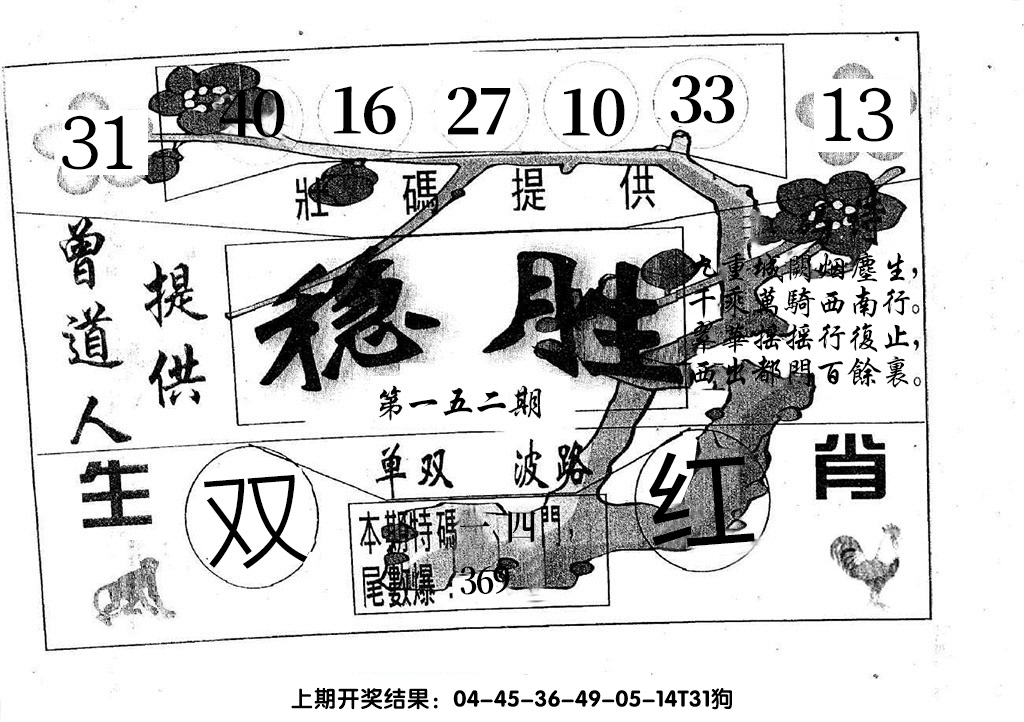 31 40 16 27 10 33 13
壯碼提供
曾道人
提供
稳胜
第一五二期
九重城闕烟塵生，
千乘萬騎西南行。
翠華摇摇行復止，
西出都門百餘裏。
生肖
单双 波路
双
红
本期特碼一、四門，
尾數爆：369
上期开奖结果：04-45-36-49-05-14T31狗